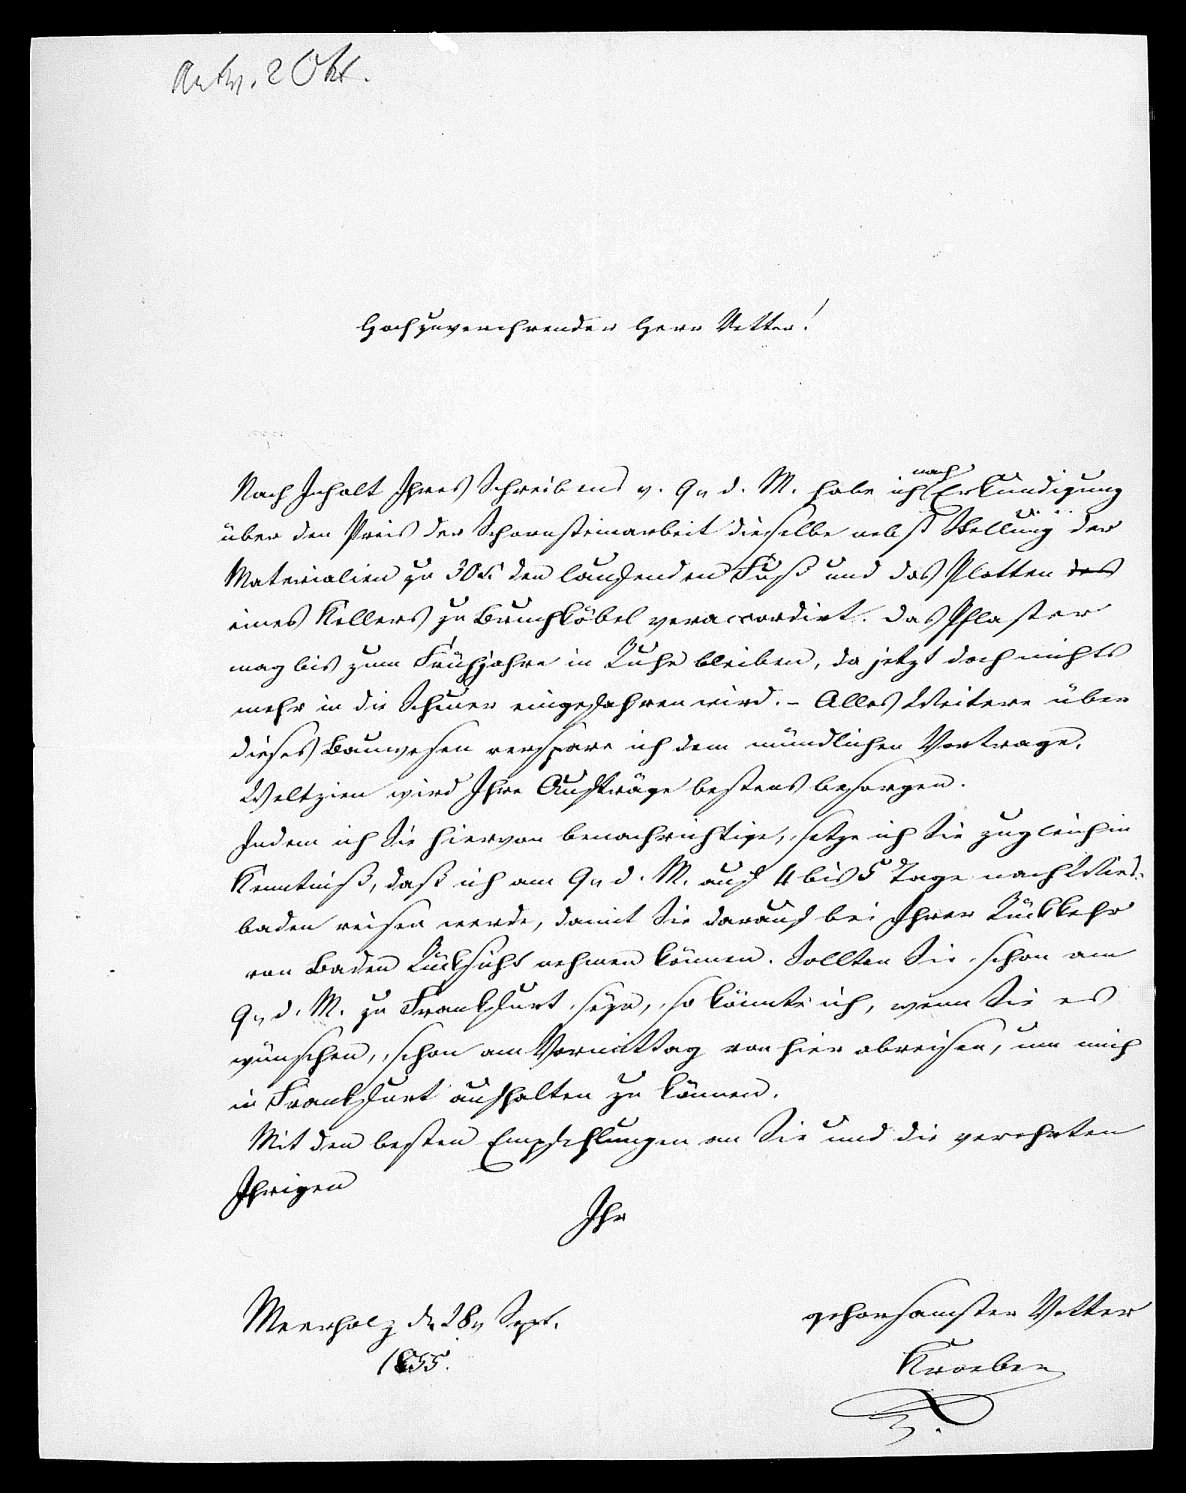 Antw. 2 Okt.
Hochzuverehrender Herr Vetter!
nach
Nach Inhalt Ihres Schreibens v. 9n d. M. habe ich Erkundigung
über den Preis der Schornsteinarbeit dieselbe nebst Stellung der
Materialien zu 30 den laufenden Fuß und das Platten des
eines Kellers zu Bruchköbel veraccordirt. Das Pflaster
mag bis zum Frühjahre in Ruhe bleiben, da jetzt doch nichts
mehr in die Scheuer eingefahren wird. – Alles Weitere über
dieses Bauwesen verspare ich dem mündlichen Vortrage.
Weltzien wird Ihre Aufträge bestens besorgen.
Indem ich Sie hiervon benachrichtige, setze ich Sie zugleich in
Kenntniß, daß ich am 9n d. M. auf 4 bis 5 Tage nach Wies-
baden reisen werde, damit Sie darauf bei Ihrer Rückkehr
von Baden Rücksicht nehmen können. Sollten Sie schon am
9n d. M. zu Frankfurt seyn, so könnte ich, wenn Sie es
wünschen, schon am Vormittag von hier abreisen, um mich
in Frankfurt aufhalten zu können.
Mit den besten Empfehlungen an Sie und die verehrten
Ihrigen
Ihr
Meerholz d. 28n Sept.
1855.
gehorsamster Vetter
Kroeber